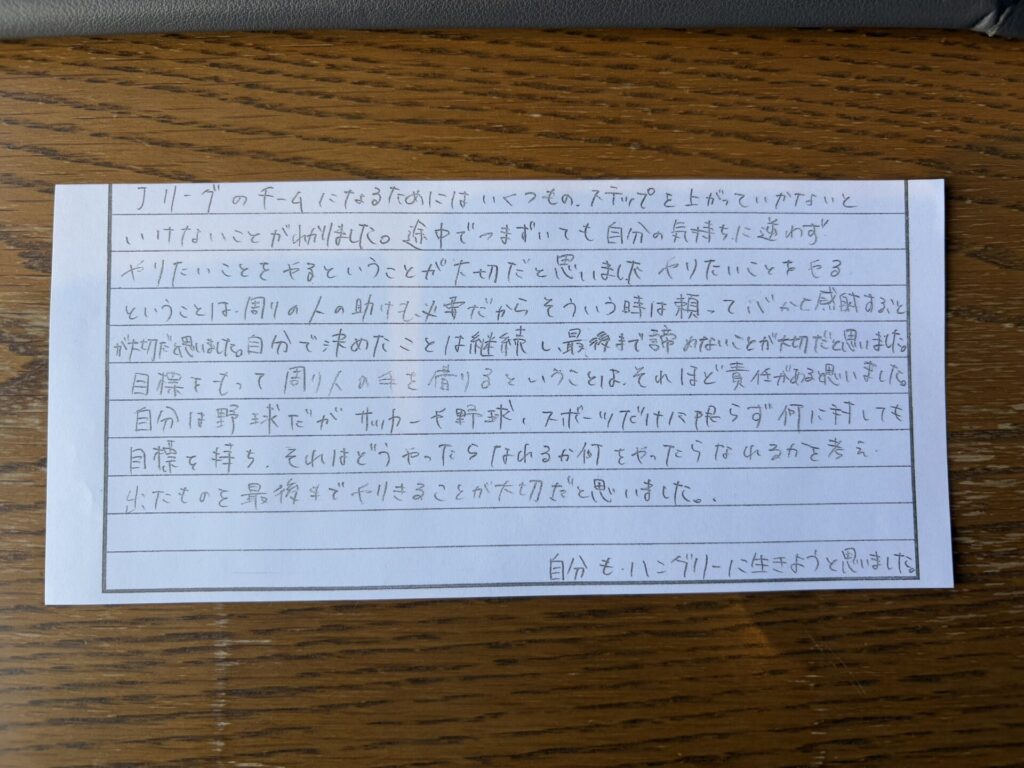 Jリーグのチームになるためにはいくつもの、ステップを上がっていかないと
いけないことがわかりました。途中でつまずいても自分の気持ちに逆わず
やりたいことをやるということが大切だと思いました やりたいことをやる
ということは、周りの人の助けも、必要だからそういう時は頼って心から感謝すること
が大切だと思いました。自分で決めたことは継続し、最後まで諦めないことが大切だと思いました。
目標をもって周り人の手を借りるということは、それほど責任があると思いました。
自分は野球だがサッカーや野球、スポーツだけに限らず何に対しても
目標を持ち、それはどうやったらなれるか何をやったらなれるかを考え、
出たものを最後までやりきることが大切だと思いました。
自分も・ハングリーに生きようと思いました。